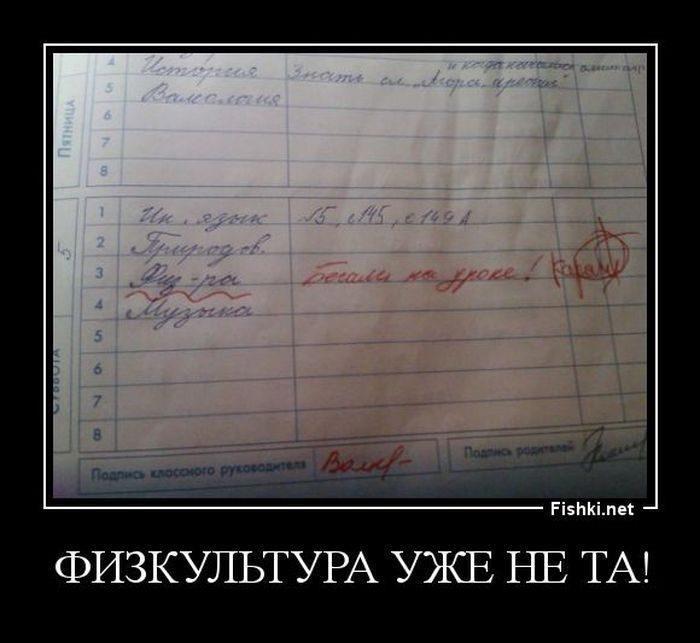 4 История Знать сл. и когда начал
5 Валеология
6
ПЯТНИЦА
7
8
1 Ин. язык №5, с145, с149
5
2 Природов.
3 Физ-ра Бегали на уроке!
4 Музыка
5
6
СУББОТА
7
8
Подпись классного руководителя
Подпись родителей
Fishki.net
ФИЗКУЛЬТУРА УЖЕ НЕ ТА!